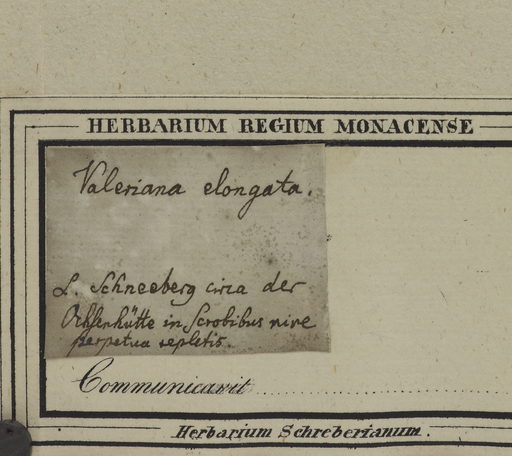 HERBARIUM REGIUM MONACENSE
Valeriana elongata.
L. Schneeberg circa der
Ochsenhütte in Scrobibus nive
perpetua repletis.
Communicavit
Herbarium Schreberianum.